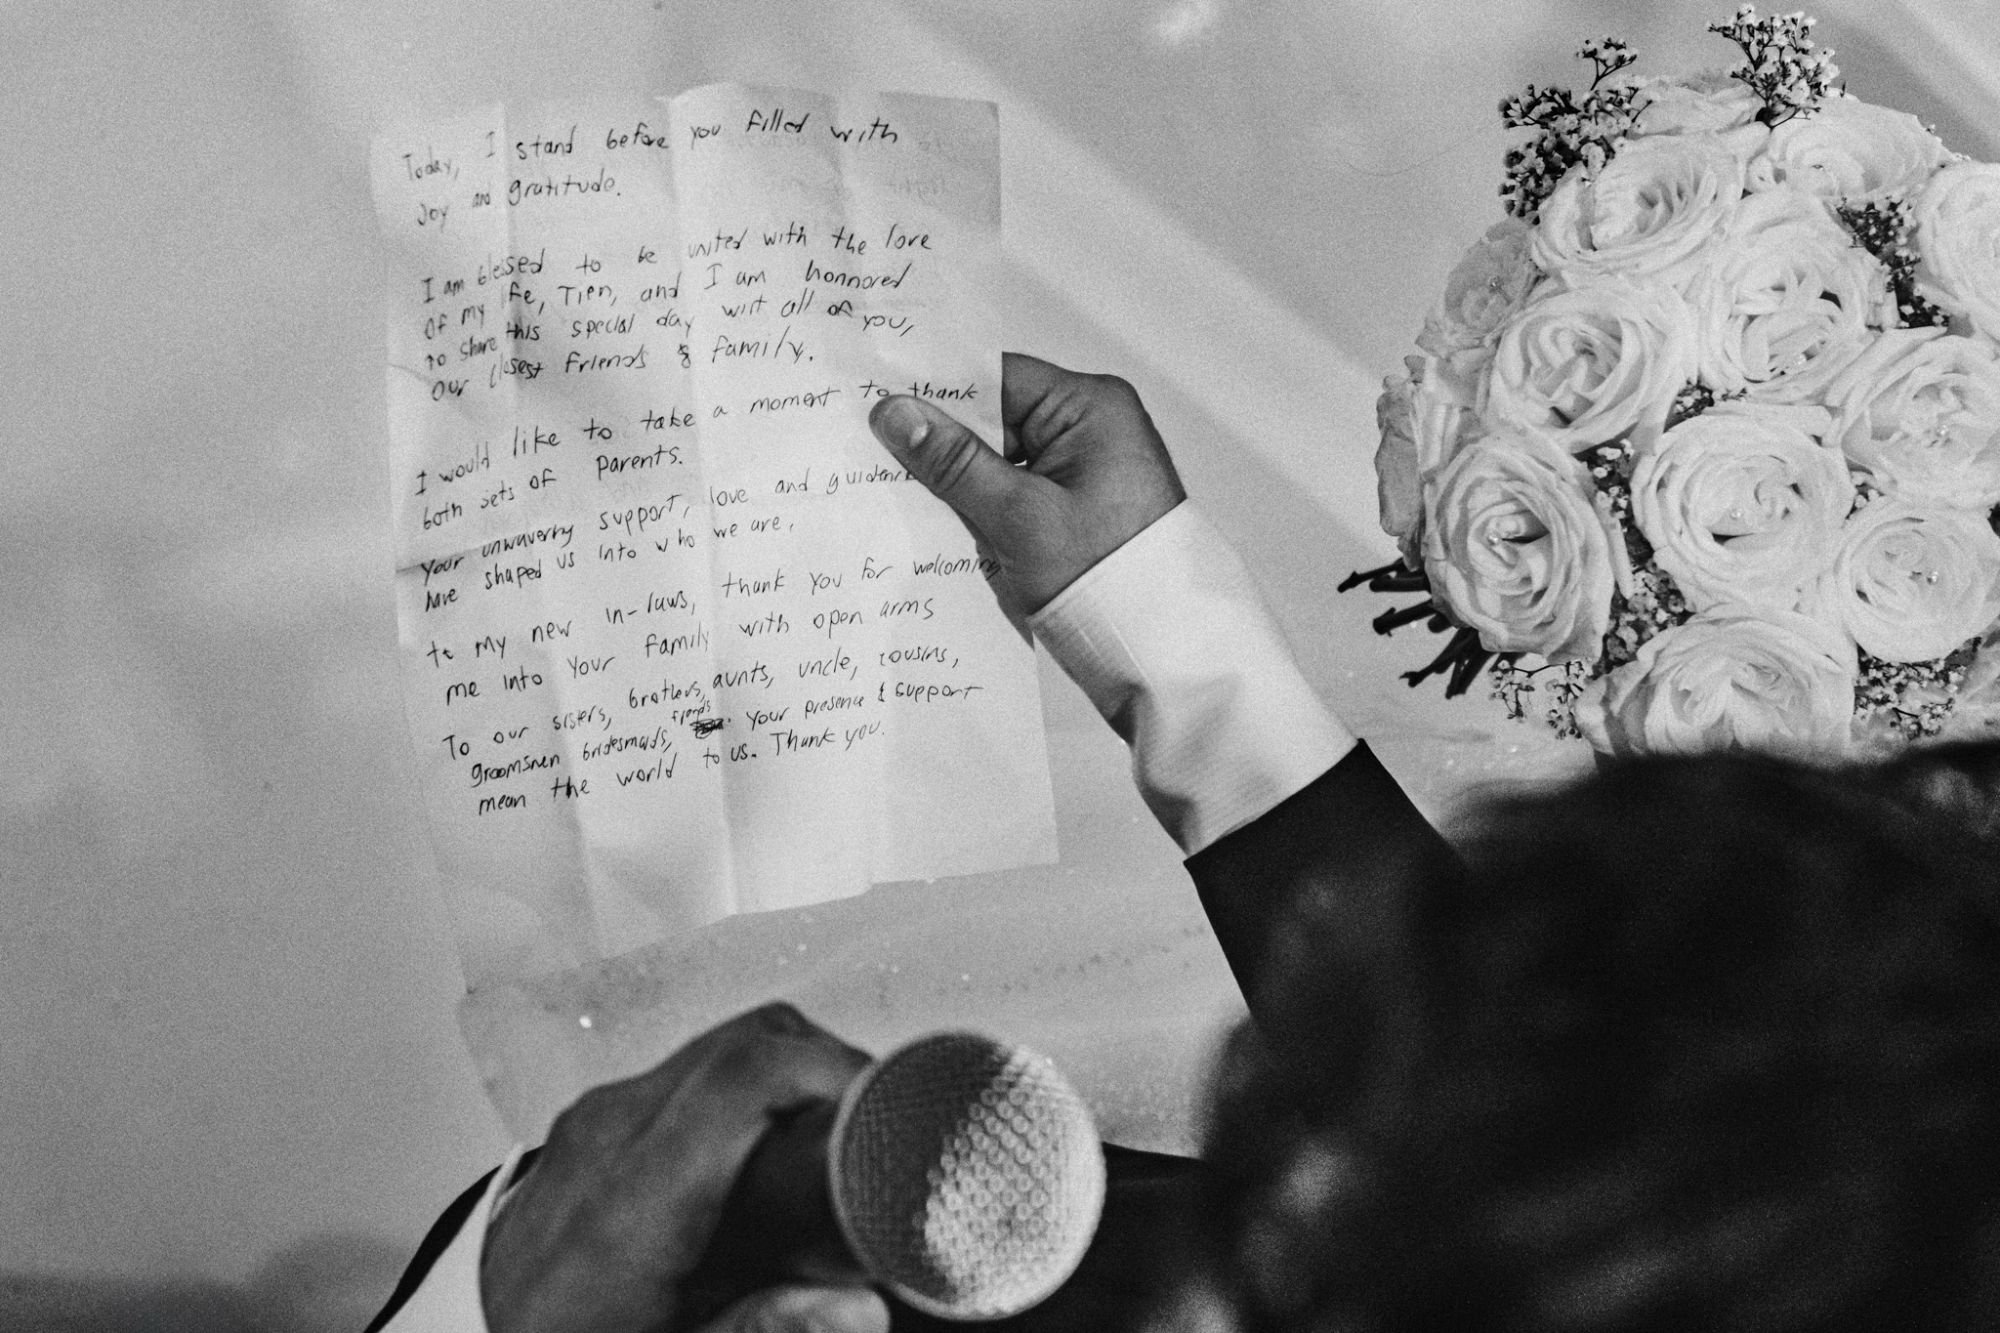 Today, I stand before you filled with
Joy and gratitude.
I am blessed to be united with the love
Of my life, Tien, and I am honnored
to share this special day wiht all of you,
our closest friends & family.
I would like to take a moment to thank
both sets of parents.
Your unwaverng support, love and guidance
have shaped us into who we are.
to my new in-laws, thank you for welcoming
me into your family with open arms
To our sisters, brothers, aunts, uncle, cousins,
groomsmen bridesmaids, friends. your presence & support
mean the world to us. Thank you.